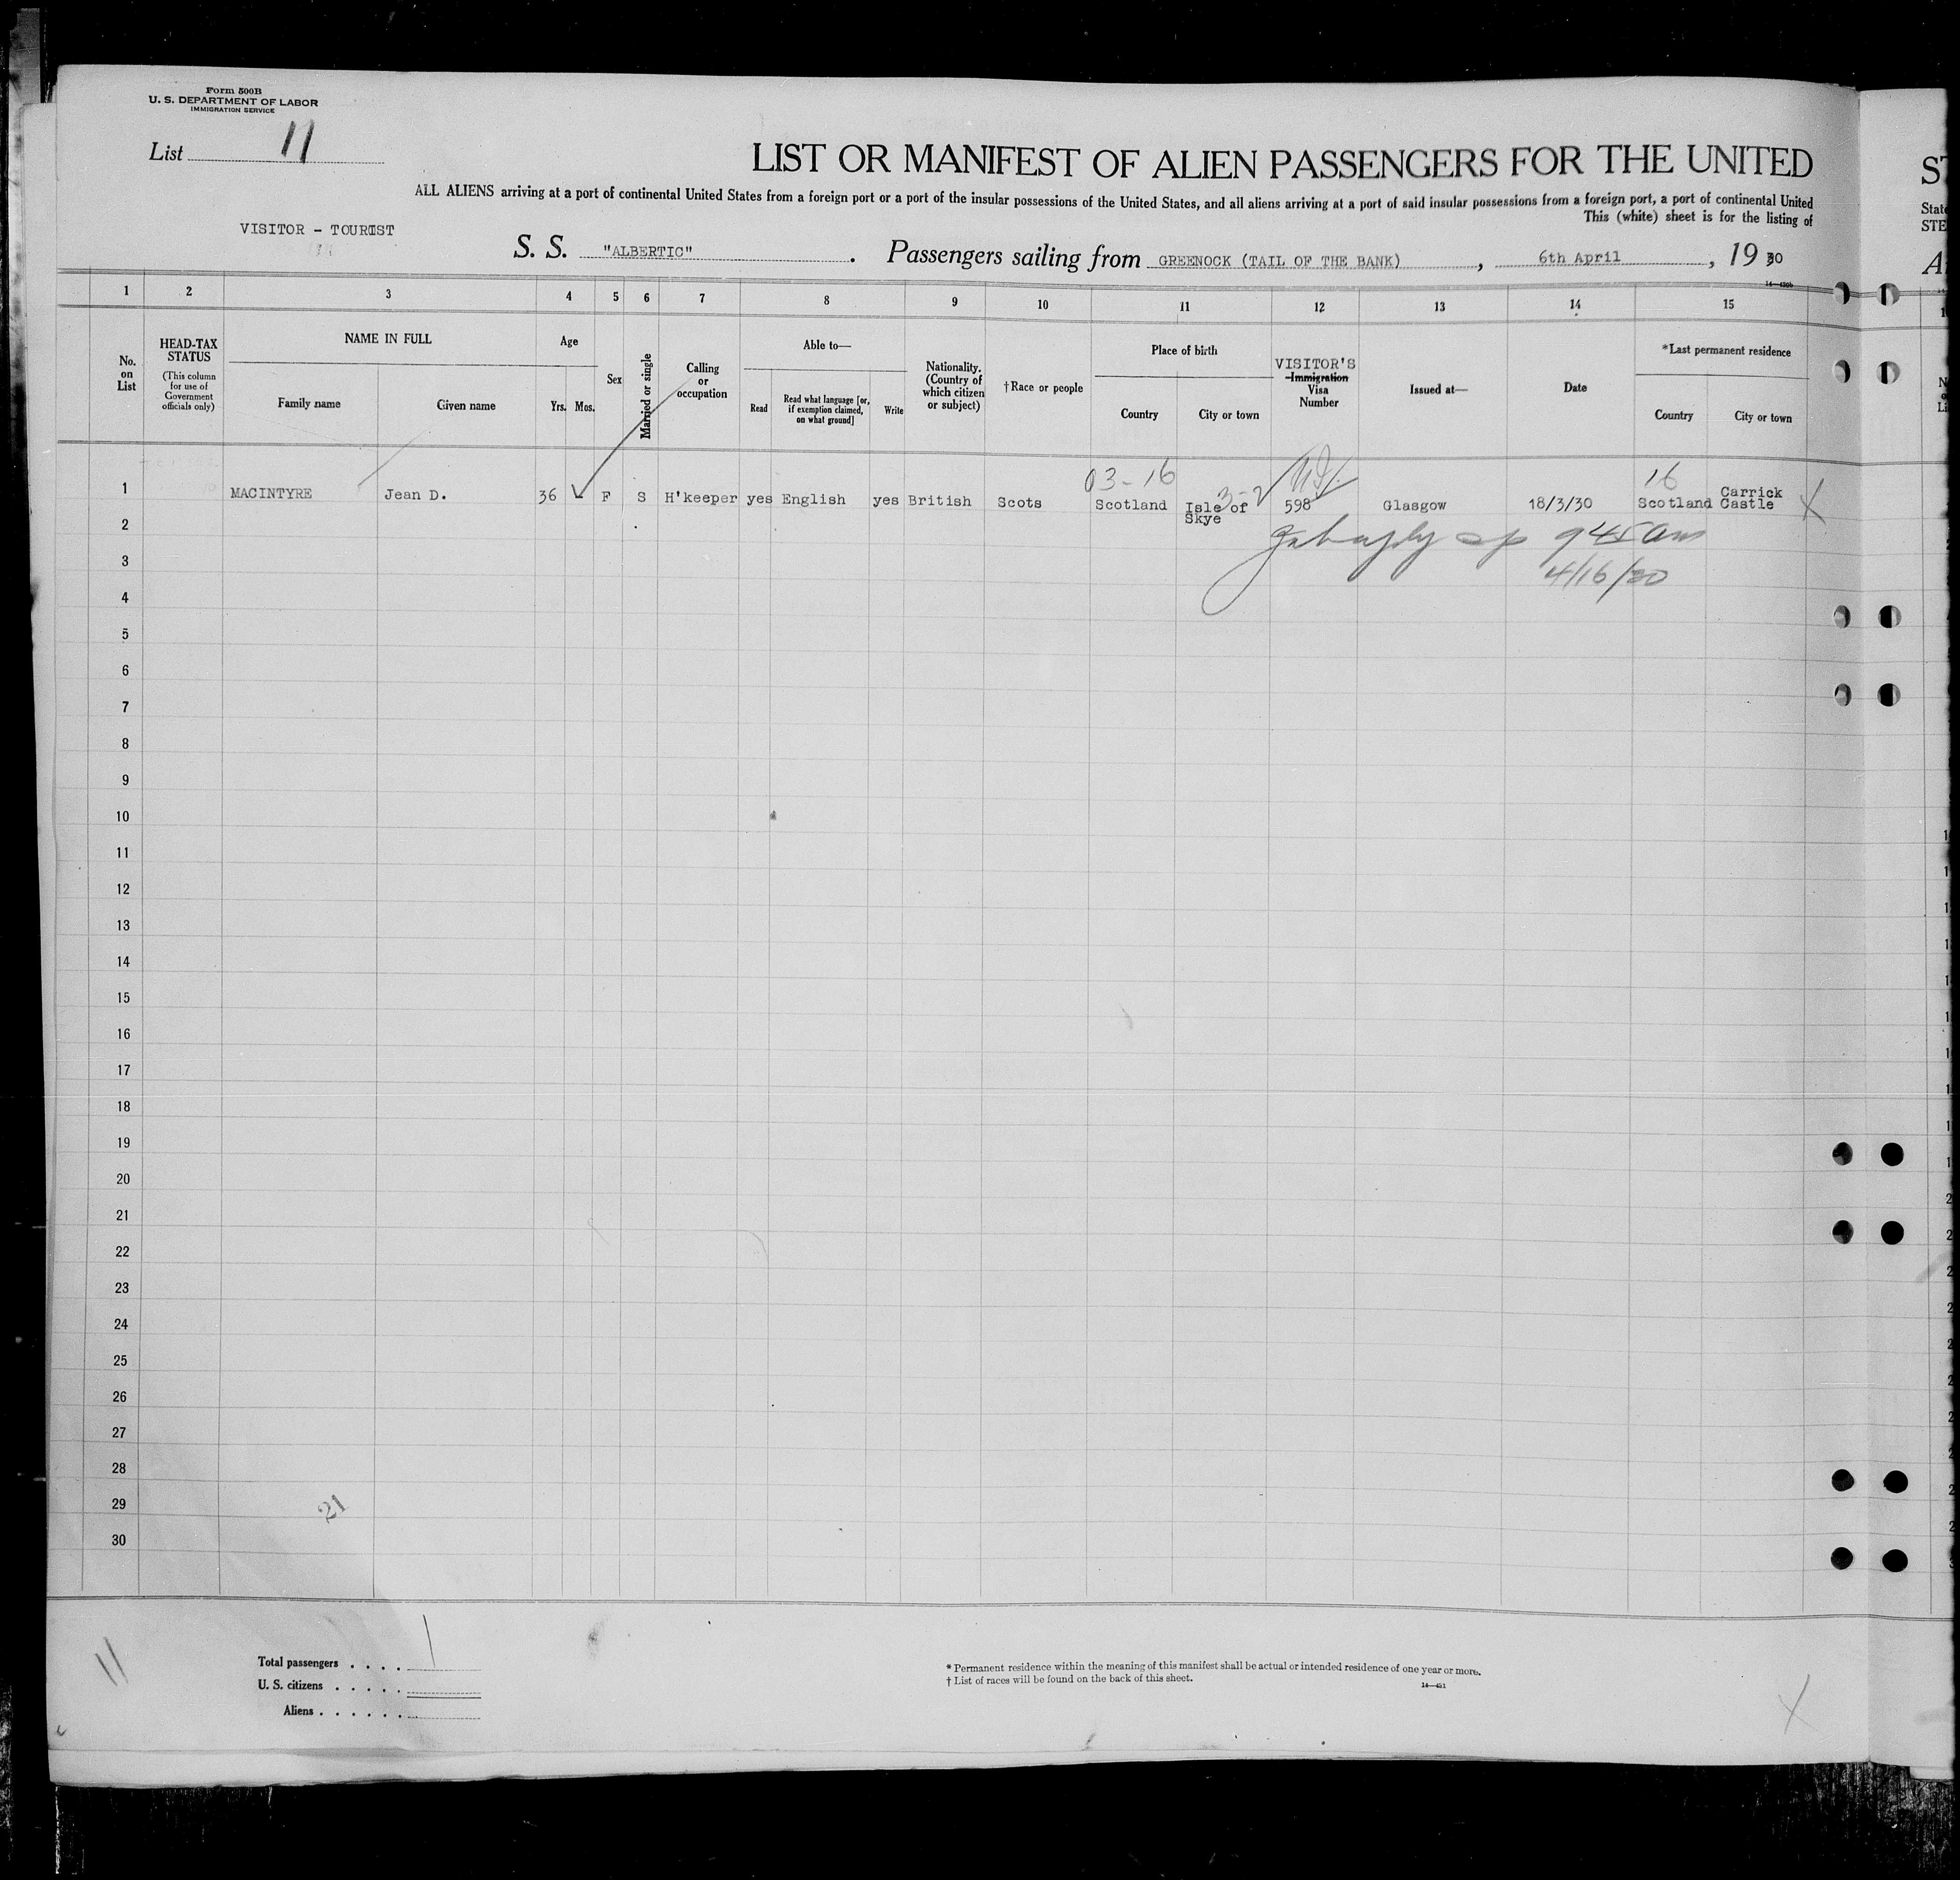 Form 500B
U. S. DEPARTMENT OF LABOR
IMMIGRATION SERVICE
List 11
LIST OR MANIFEST OF ALIEN PASSENGERS FOR THE UNITED
ALL ALIENS arriving at a port of continental United States from a foreign port or a port of the insular possessions of the United States, and all aliens arriving at a port of said insular possessions from a foreign port, a port of continental United
This (white) sheet is for the listing of
VISITOR - TOURIST
S. S. "ALBERTIC" . Passengers sailing from GREENOCK (TAIL OF THE BANK) , 6th April , 19 30
1 2 3 4 5 6 7 8 9 10 11 12 13 14 15
No. on List
HEAD-TAX STATUS
(This column for use of Government officials only)
NAME IN FULL
Family name Given name
Age
Yrs. Mos.
Sex
Married or single
Calling or occupation
Able to—
Read
Read what language [or, if exemption claimed, on what ground]
Write
Nationality. (Country of which citizen or subject)
†Race or people
Place of birth
Country City or town
VISITOR'S
Immigration
Visa
Number
Issued at—
Date
*Last permanent residence
Country City or town
03-16 16
1 MACINTYRE Jean D. 36 F S H'keeper yes English yes British Scots Scotland Isle of Skye 598 Glasgow 18/3/30 Scotland Carrick Castle X
945 am
4/16/30
2
3
4
5
6
7
8
9
10
11
12
13
14
15
16
17
18
19
20
21
22
23
24
25
26
27
28
29
30
21
11
Total passengers . . . . 1
U. S. citizens . . . . .
Aliens . . . . . .
* Permanent residence within the meaning of this manifest shall be actual or intended residence of one year or more.
† List of races will be found on the back of this sheet.
14—451
X